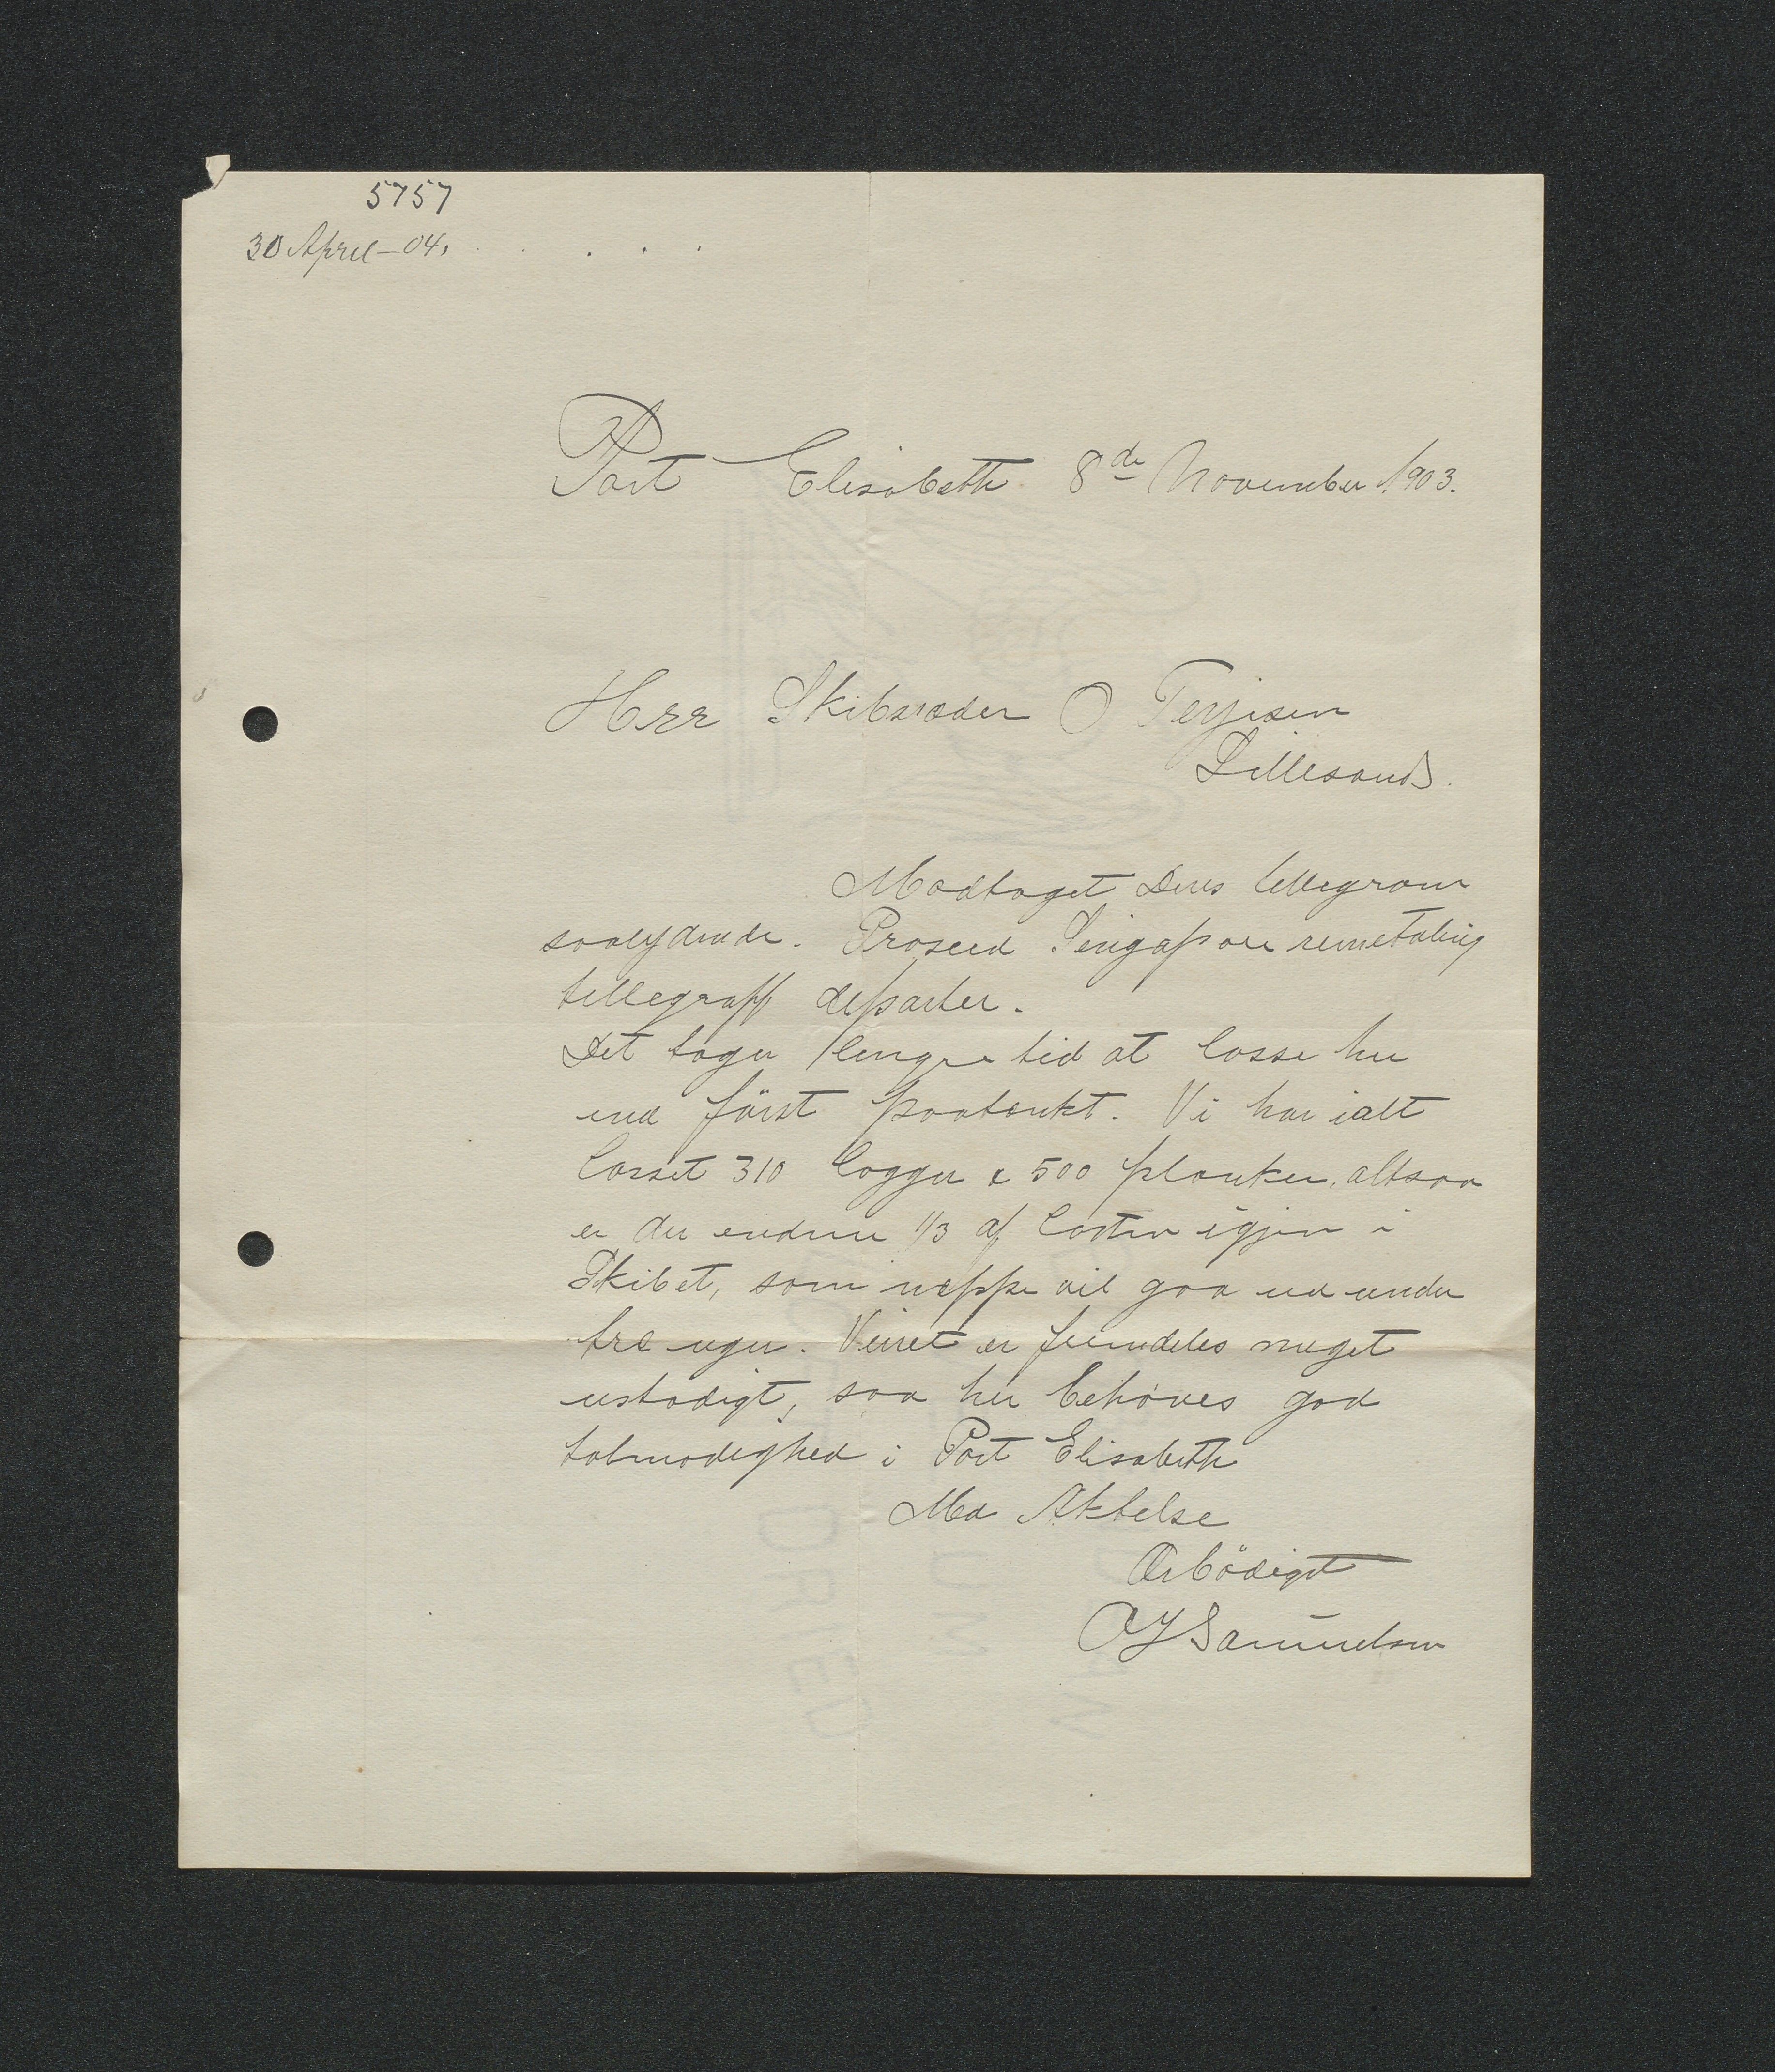 5757
30 April - 04,
Port Elisabeth 8de November 1903.
Herr Skibsræder O Terjesen
Lillesand.
Modtaget Deres tellegram
saalydende. Proseed Singapore
tellegraff departer.
Det tager længre tid at losse her
end først paatenkt. Vi har ialt
losset 310 logger & 500 planker, altsaa
er der endnu 1/3 af lasten igjen i
Skibet, som neppe vil gaa ud under
tre uger. Veiret er fremdeles meget
ustadigt, saa her behøves god
talmodighed i Port Elisabeth
Med Aktelse
Ærbødigst
Samuelsen